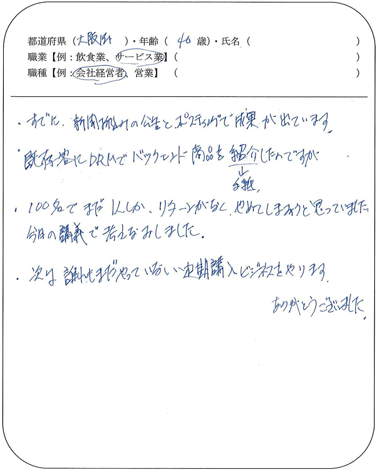 都道府県（大阪府　）・年齢（ 40 歳）・氏名（　）
職業【例：飲食業、サービス業】（　）
職種【例：会社経営者、営業】（　）
・すでに、新聞折込みの公告とポスティングで成果が出ています。
・既存客にDRMでバックエンド商品を紹介したんですが
↓
手紙
・100名でまだ1人しか、リターンがなく、やめてしまおうと思っていました
今日の講義で考えなおしました。
・次は誰れもまだやっていない定期購入ビジネスをやります。
ありがとうございました。